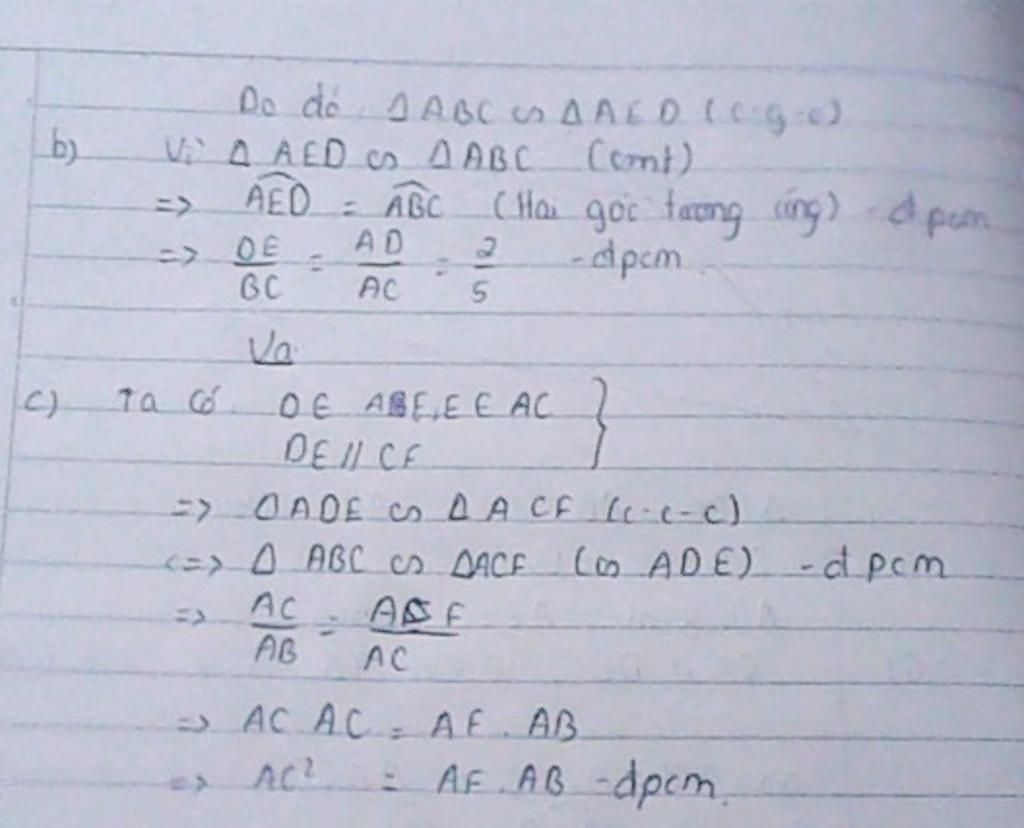 Do đó ΔABC ∽ ΔAED (c.g.c)
b) Vì Δ AED ∽ ΔABC (cmt)
=> AED = ABC (Hai góc tương ứng) - đpcm
=> DE/BC = AD/AC = 2/5 - đpcm
Va
c) Ta có D ∈ AB, E ∈ AC }
DE // CF
=> ΔADE ∽ Δ ACF (c-c-c)
<=> Δ ABC ∽ ΔACF (∽ ADE) - đpcm
=> AC/AB = AF/AC
=> AC AC = AF . AB
=> AC² = AF . AB - đpcm.